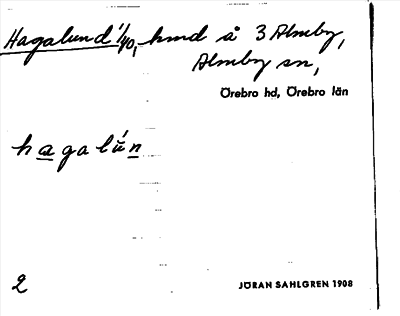 Hagalund 1/40, hmd å 3 Almby,
Almby sn,
Örebro hd, Örebro län
hagalún
2
JÖRAN SAHLGREN 1908